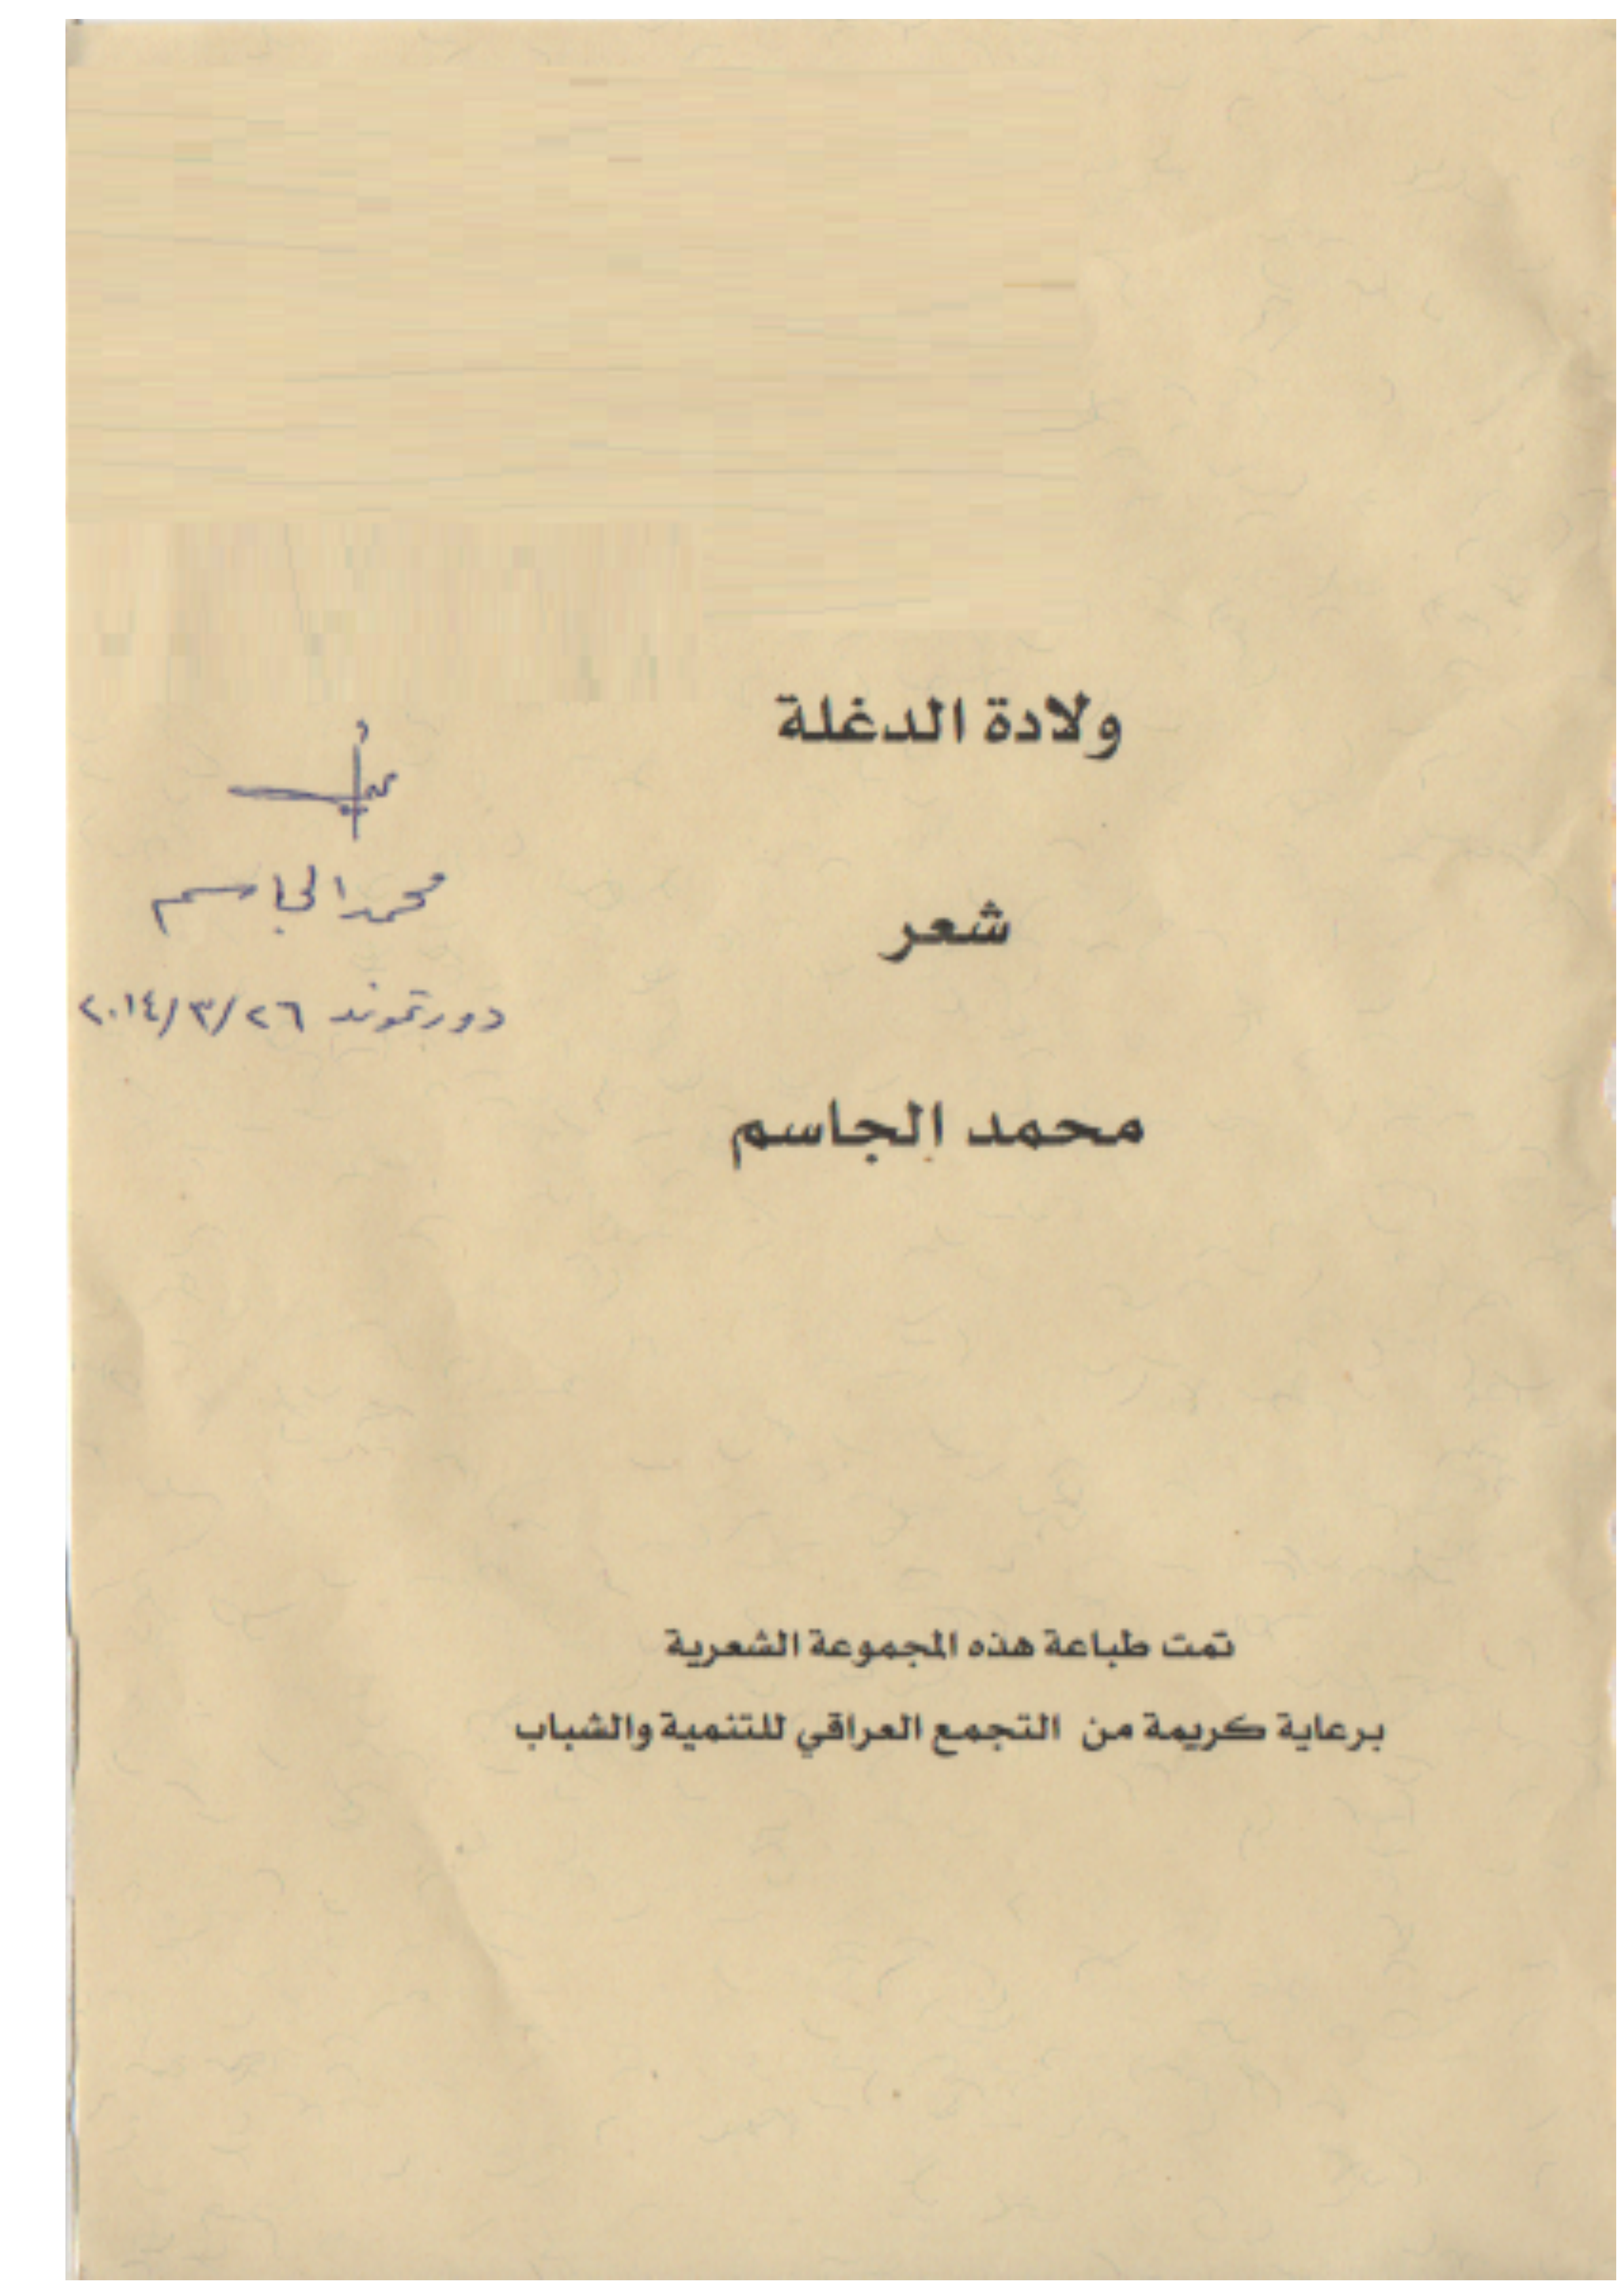 ولادة الدغلة
شعر
محمد الجاسم
محمد الجاسم
دورتموند ٢٦/٣/٢٠١٤
تمت طباعة هذه المجموعة الشعرية
برعاية كريمة من التجمع العراقي للتنمية والشباب